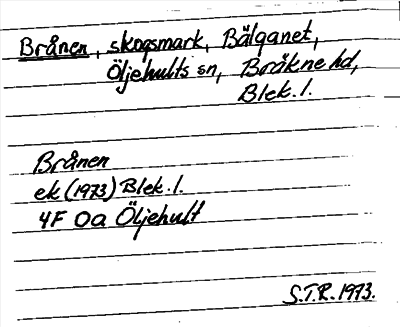 Brånen, skogsmark, Bälganet,
Öljehults sn, Bräkne hd,
Blek. l.
Brånen
ek (1973) Blek. l.
4F 0a Öljehult
S.T.R. 1973.